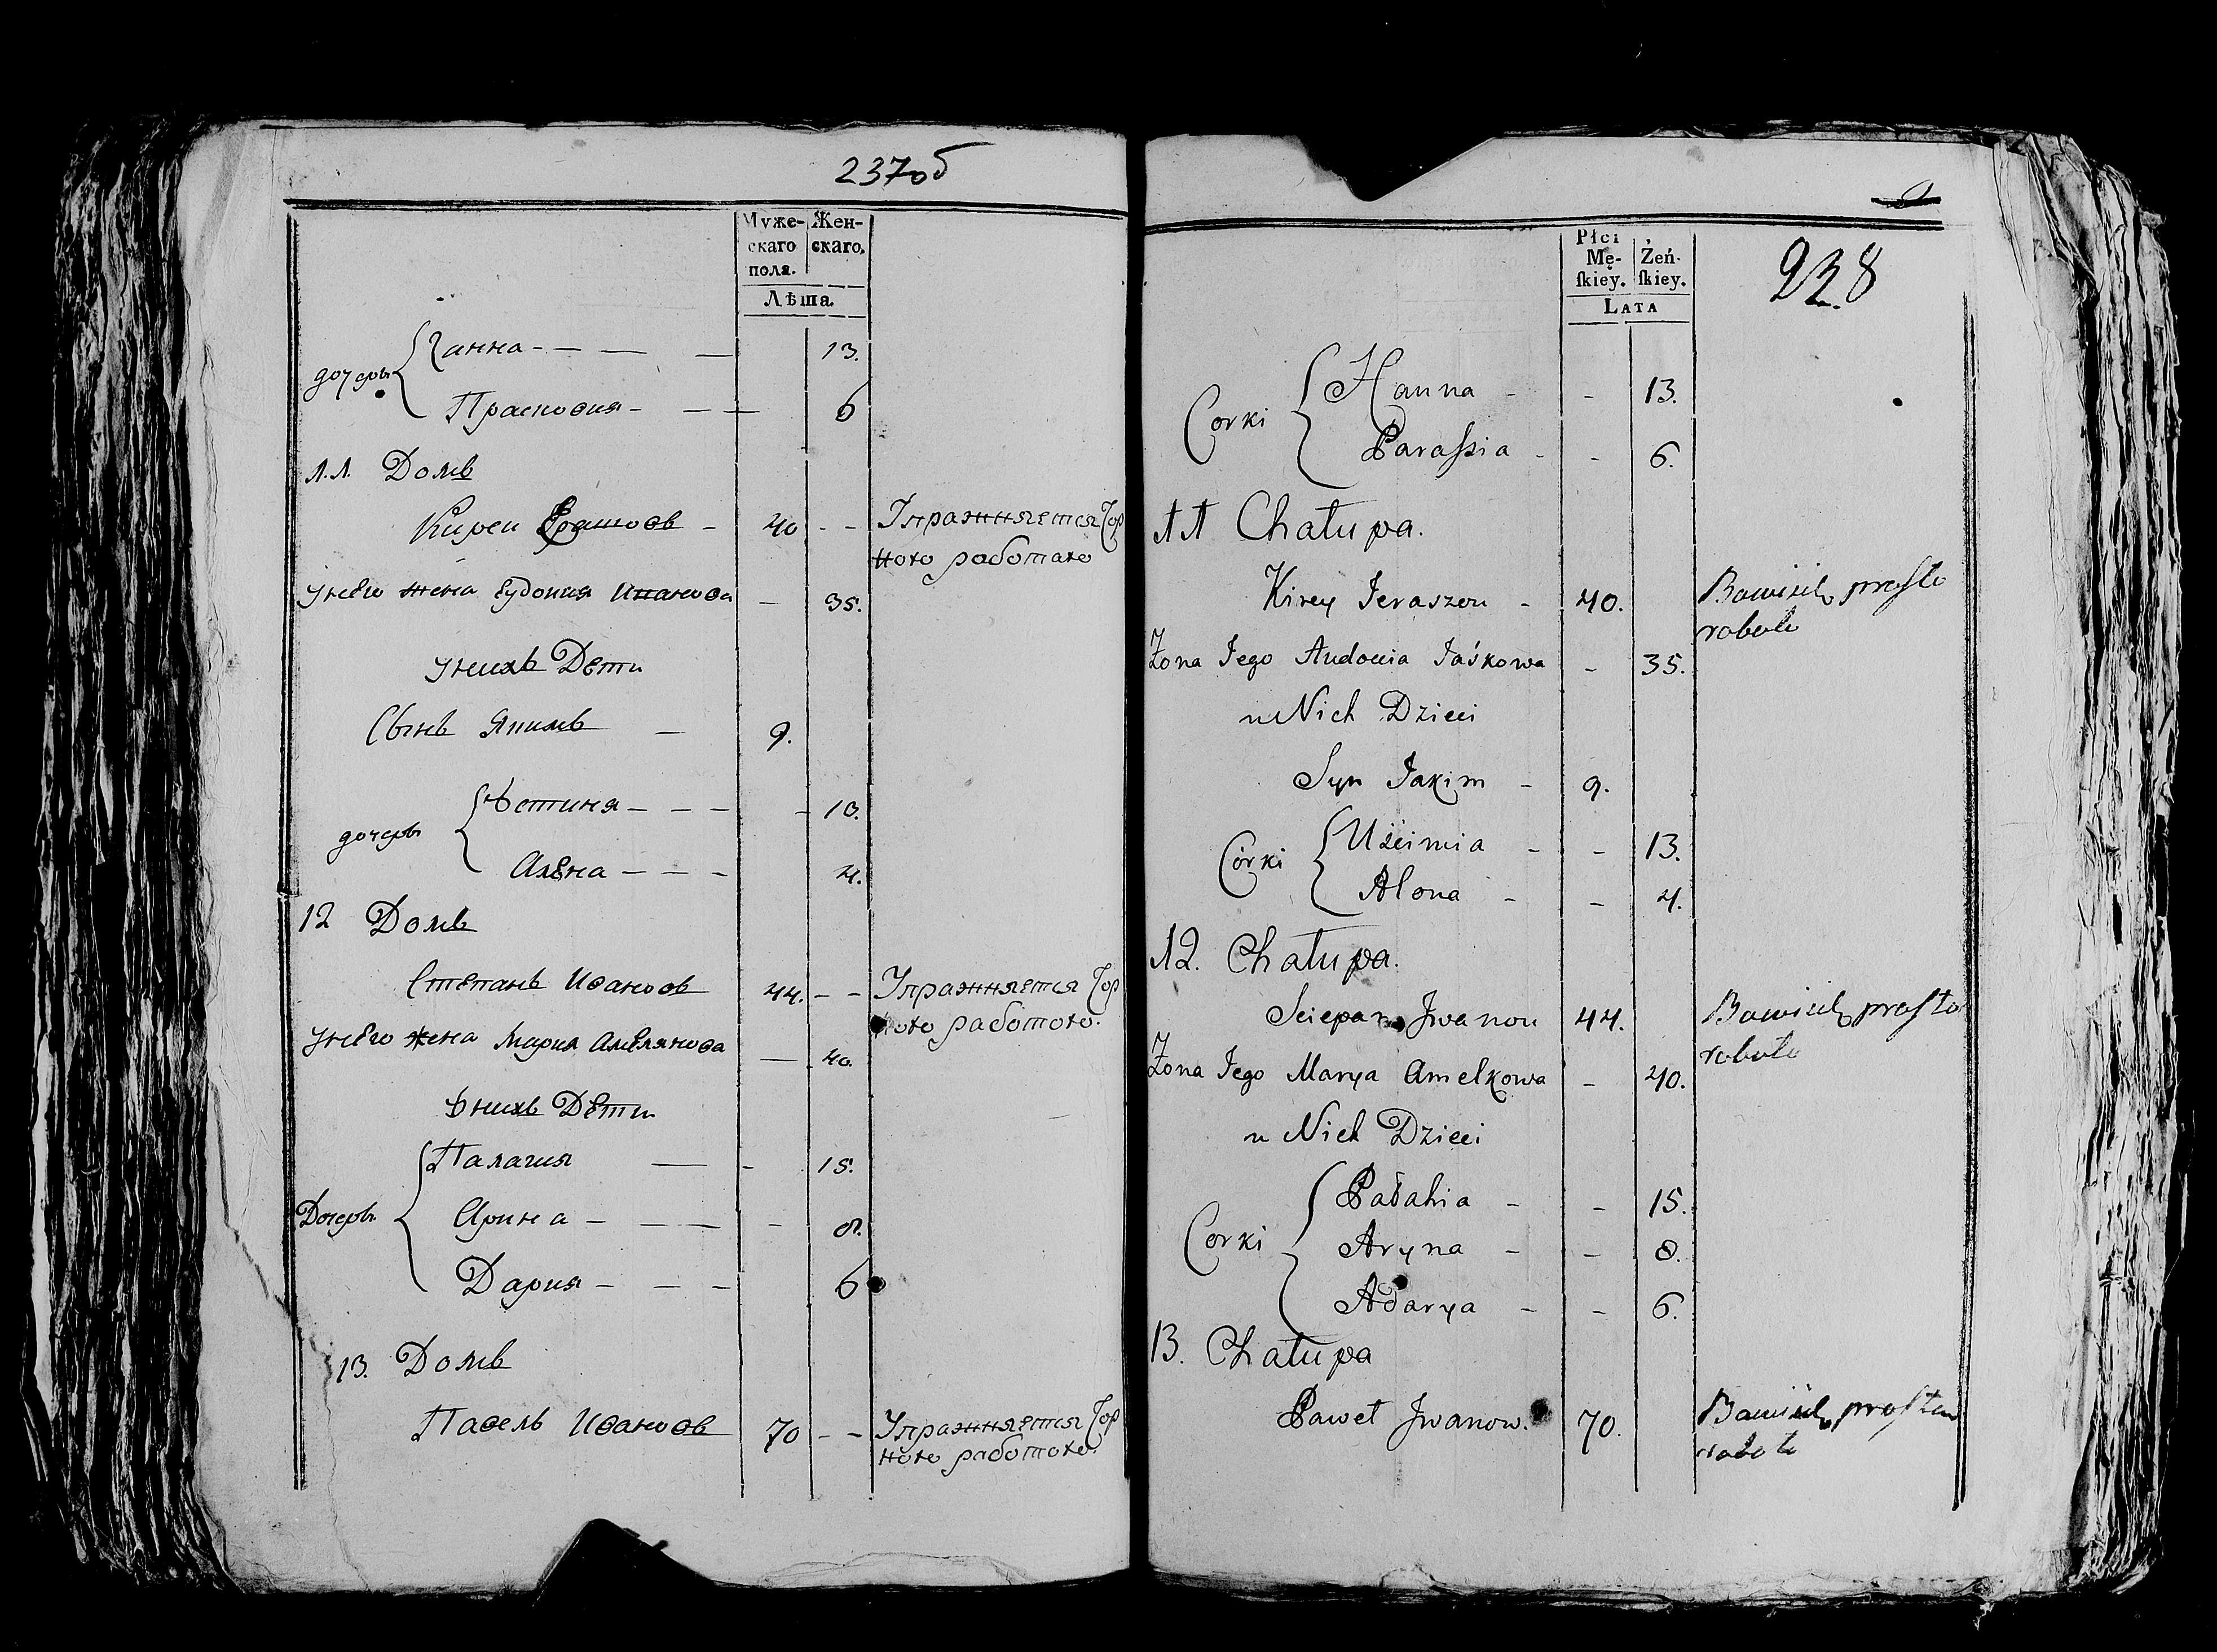 237об
Муже- Жен-
скаго скаго.
пола.
Лѣта.
дочеры
Ганна - - - - 13.
Прасковия - - - 6
11. Домъ
Кирей Ерашовъ - 40 - - Упражняется Чор
ною работаю
унего жена Еудокия Иванова - 35.
унихъ Дети
Сынъ Якимъ - 9.
дочеры
Устиня - - - - 13.
Алена - - - 4.
12 Домъ
Степанъ Ивановъ 44. - - Упражняется Чор
ною работою.
унего жена Мария Амелянова - 40.
Унихъ Дети
Дочеры
Палагия - - 15.
Арина - - - - 8.
Дария - - - 6
13. Домъ
Павелъ Ивановъ 70 - - Упражняется Чор
ною работою.
Płci
Mę- Żeń-
ſkiey. ſkiey.
LATA
238
Corki
Hanna - - 13.
Paraſsia - - 6.
11 Chałupa.
Kirey Jeraszou - 40. Bawi się prosto
roboto
Żona Jego Audocia Jaśkowa - 35.
u Nich Dzieci
Syn Jakim - 9.
Córki
Uścimia - - 13.
Alona - - 4.
12. Chałupa.
Sciepan Jwanou 44. Bawi się prosto
roboto
Żona Jego Marya Amelkowa - 40.
u Nich Dzieci
Corki
Pałahia - - 15.
Aryna - - 8.
Adarya - - 6.
13. Chałupa
Paweł Jwanow. 70. Bawi się prosto
roboto